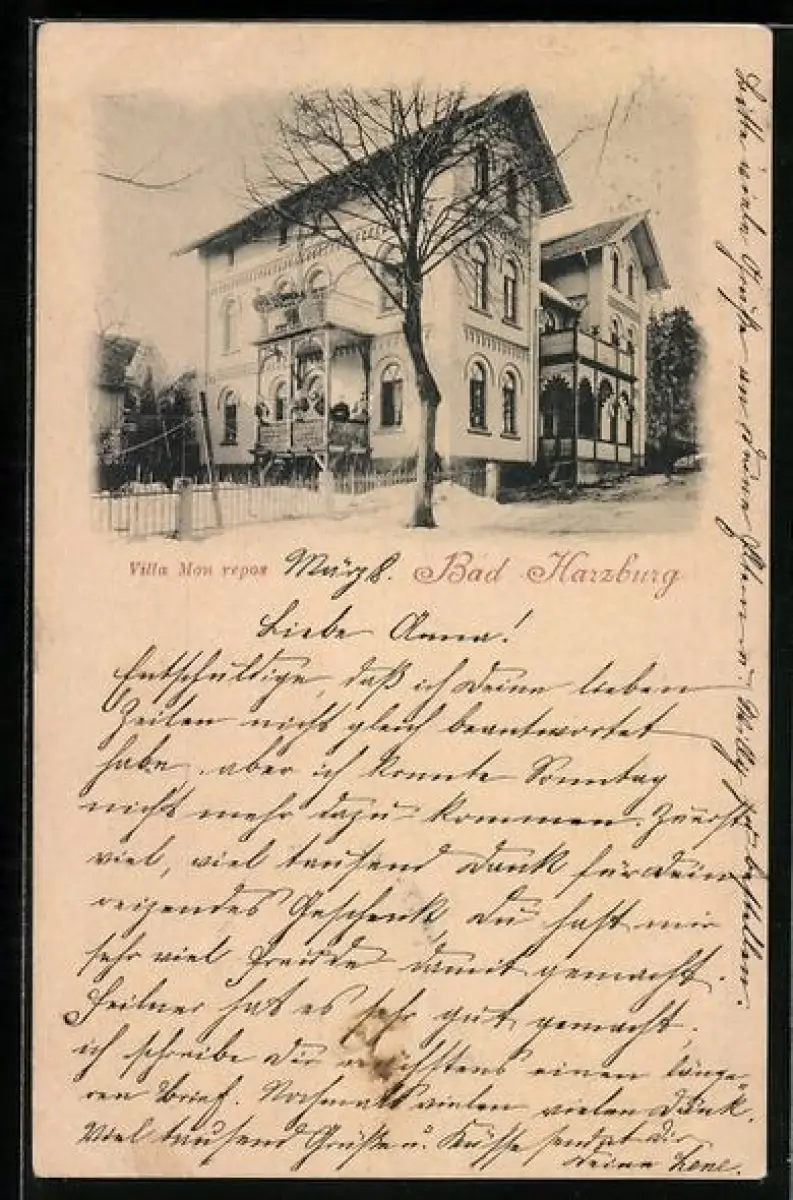 Villa Mon repos März 8. Bad Harzburg
Liebe Anna!
Entschuldige, daß ich Deine lieben
Zeilen nicht gleich beantwortet
habe, aber ich konnte Sonntag
nicht mehr dazu kommen. Zuerst
viel, viel tausend Dank für Dein
reizendes Geschenk, Du hast mir
sehr viel Freude damit gemacht.
hat es sehr gut gemacht,
ich schreibe Dir nächstens einen länge-
ren Brief. Nochmals vielen vielen Dank.
Viel tausend Grüße u. Küsse sendet Dir
Deine Lene.
Bitte viele Grüße an Deine Eltern u. Willy zu bestellen.